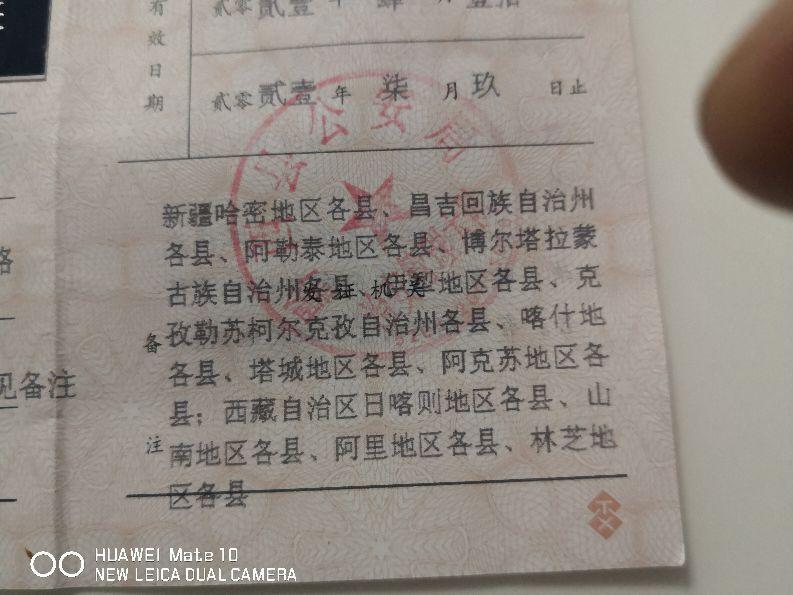 有效日期
贰零贰壹 年 肆 月 壹拾
贰零贰壹 年 柒 月 玖 日止
公安局
新疆哈密地区各县、昌吉回族自治州
各县、阿勒泰地区各县、博尔塔拉蒙
古族自治州各县、伊犁地区各县、克
发证机关
孜勒苏柯尔克孜自治州各县、喀什地
各县、塔城地区各县、阿克苏地区各
县；西藏自治区日喀则地区各县、山
南地区各县、阿里地区各县、林芝地
区各县
备注
见备注
HUAWEI Mate 10
NEW LEICA DUAL CAMERA